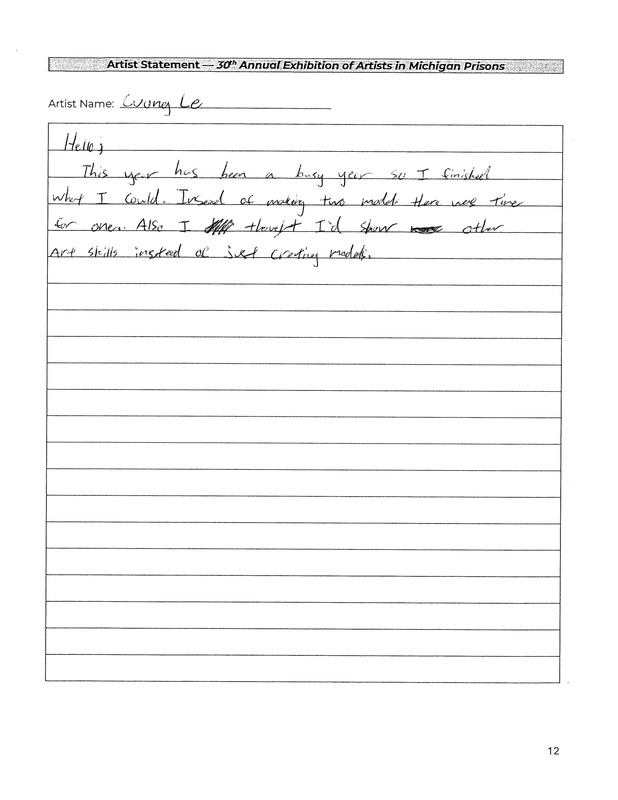 Artist Statement — 30th Annual Exhibition of Artists in Michigan Prisons
Artist Name: Cuong Le
Hello;
This year has been a busy year so I finished
what I could. Insead of making two models there was time
for one. Also I thought I'd show other
Art skills instead of just creating models.
12